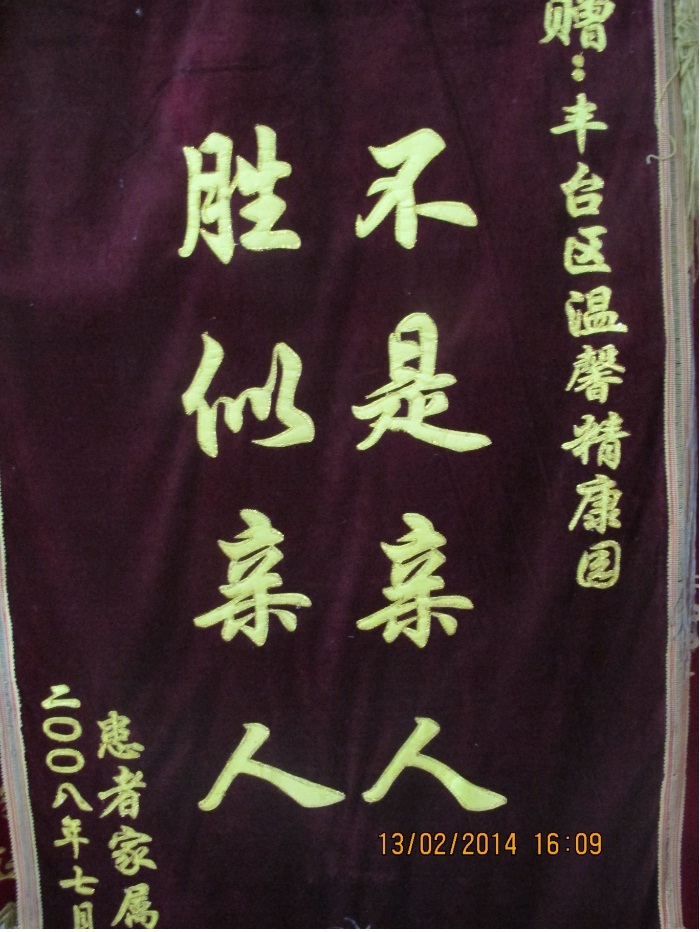 赠：丰台区温馨精康园
不是亲人
胜似亲人
患者家属
二〇〇八年七月
13/02/2014 16:09